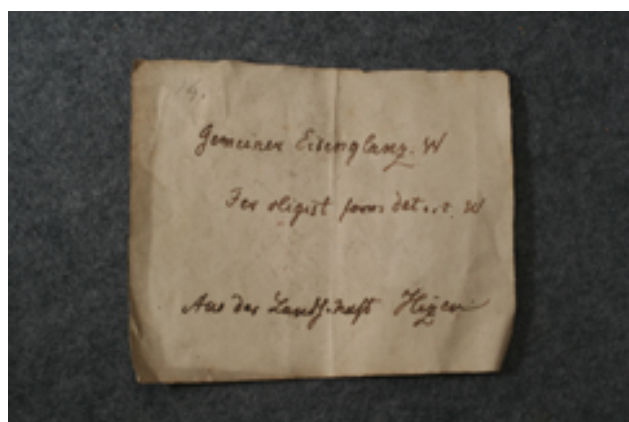 14.
Gemeiner Eisenglanz. W
Fer oligist
Aus der Landschaft Hizen